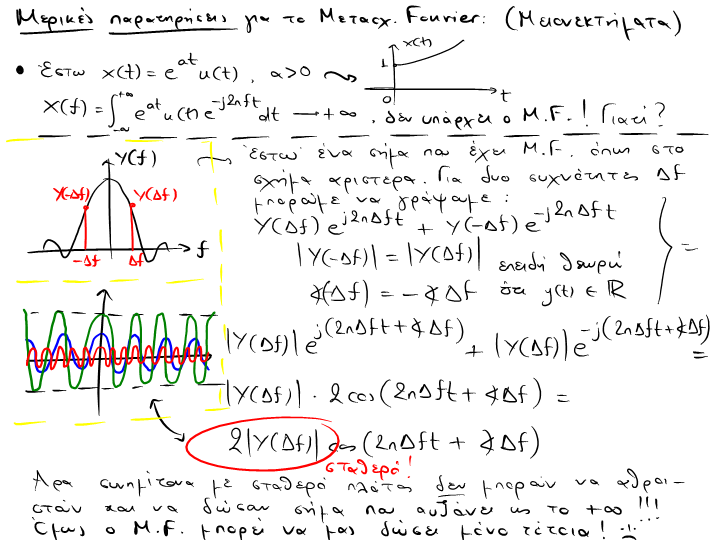 Μερικές παρατηρήσεις για το Μετασχ. Fourier: (Μειονεκτήματα)
• Έστω x(t) = e^{at} u(t), a>0
x(t)
1
0
t
X(f) = ∫_{-∞}^{+∞} e^{at} u(t) e^{-j2πft} dt → +∞, δεν υπάρχει ο Μ.F.! Γιατί?
Y(f)
Y(-Δf)
Y(Δf)
-Δf
Δf
f
Έστω ένα σήμα που έχει Μ.F. όπως στο
σχήμα αριστερα. Για δυο συχνότητες Δf
μπορούμε να γράψουμε:
Y(Δf) e^{j2πΔft} + Y(-Δf) e^{-j2πΔft}
|Y(-Δf)| = |Y(Δf)| επειδή θεωρώ
∢(-Δf) = -∢Δf ότι y(t) ∈ ℝ
=
|Y(Δf)| e^{j(2πΔft + ∢Δf)} + |Y(Δf)| e^{-j(2πΔft + ∢Δf)} =
|Y(Δf)| · 2cos(2πΔft + ∢Δf) =
2|Y(Δf)| cos(2πΔft + ∢Δf)
σταθερό!
Άρα συνημίτονα με σταθερό πλάτος δεν μπορούν να αθροι-
στούν και να δώσουν σήμα που αυξάνει ως το +∞ !!!
Όμως ο Μ.F. μπορεί να μας δώσει μόνο τέτοια! :(